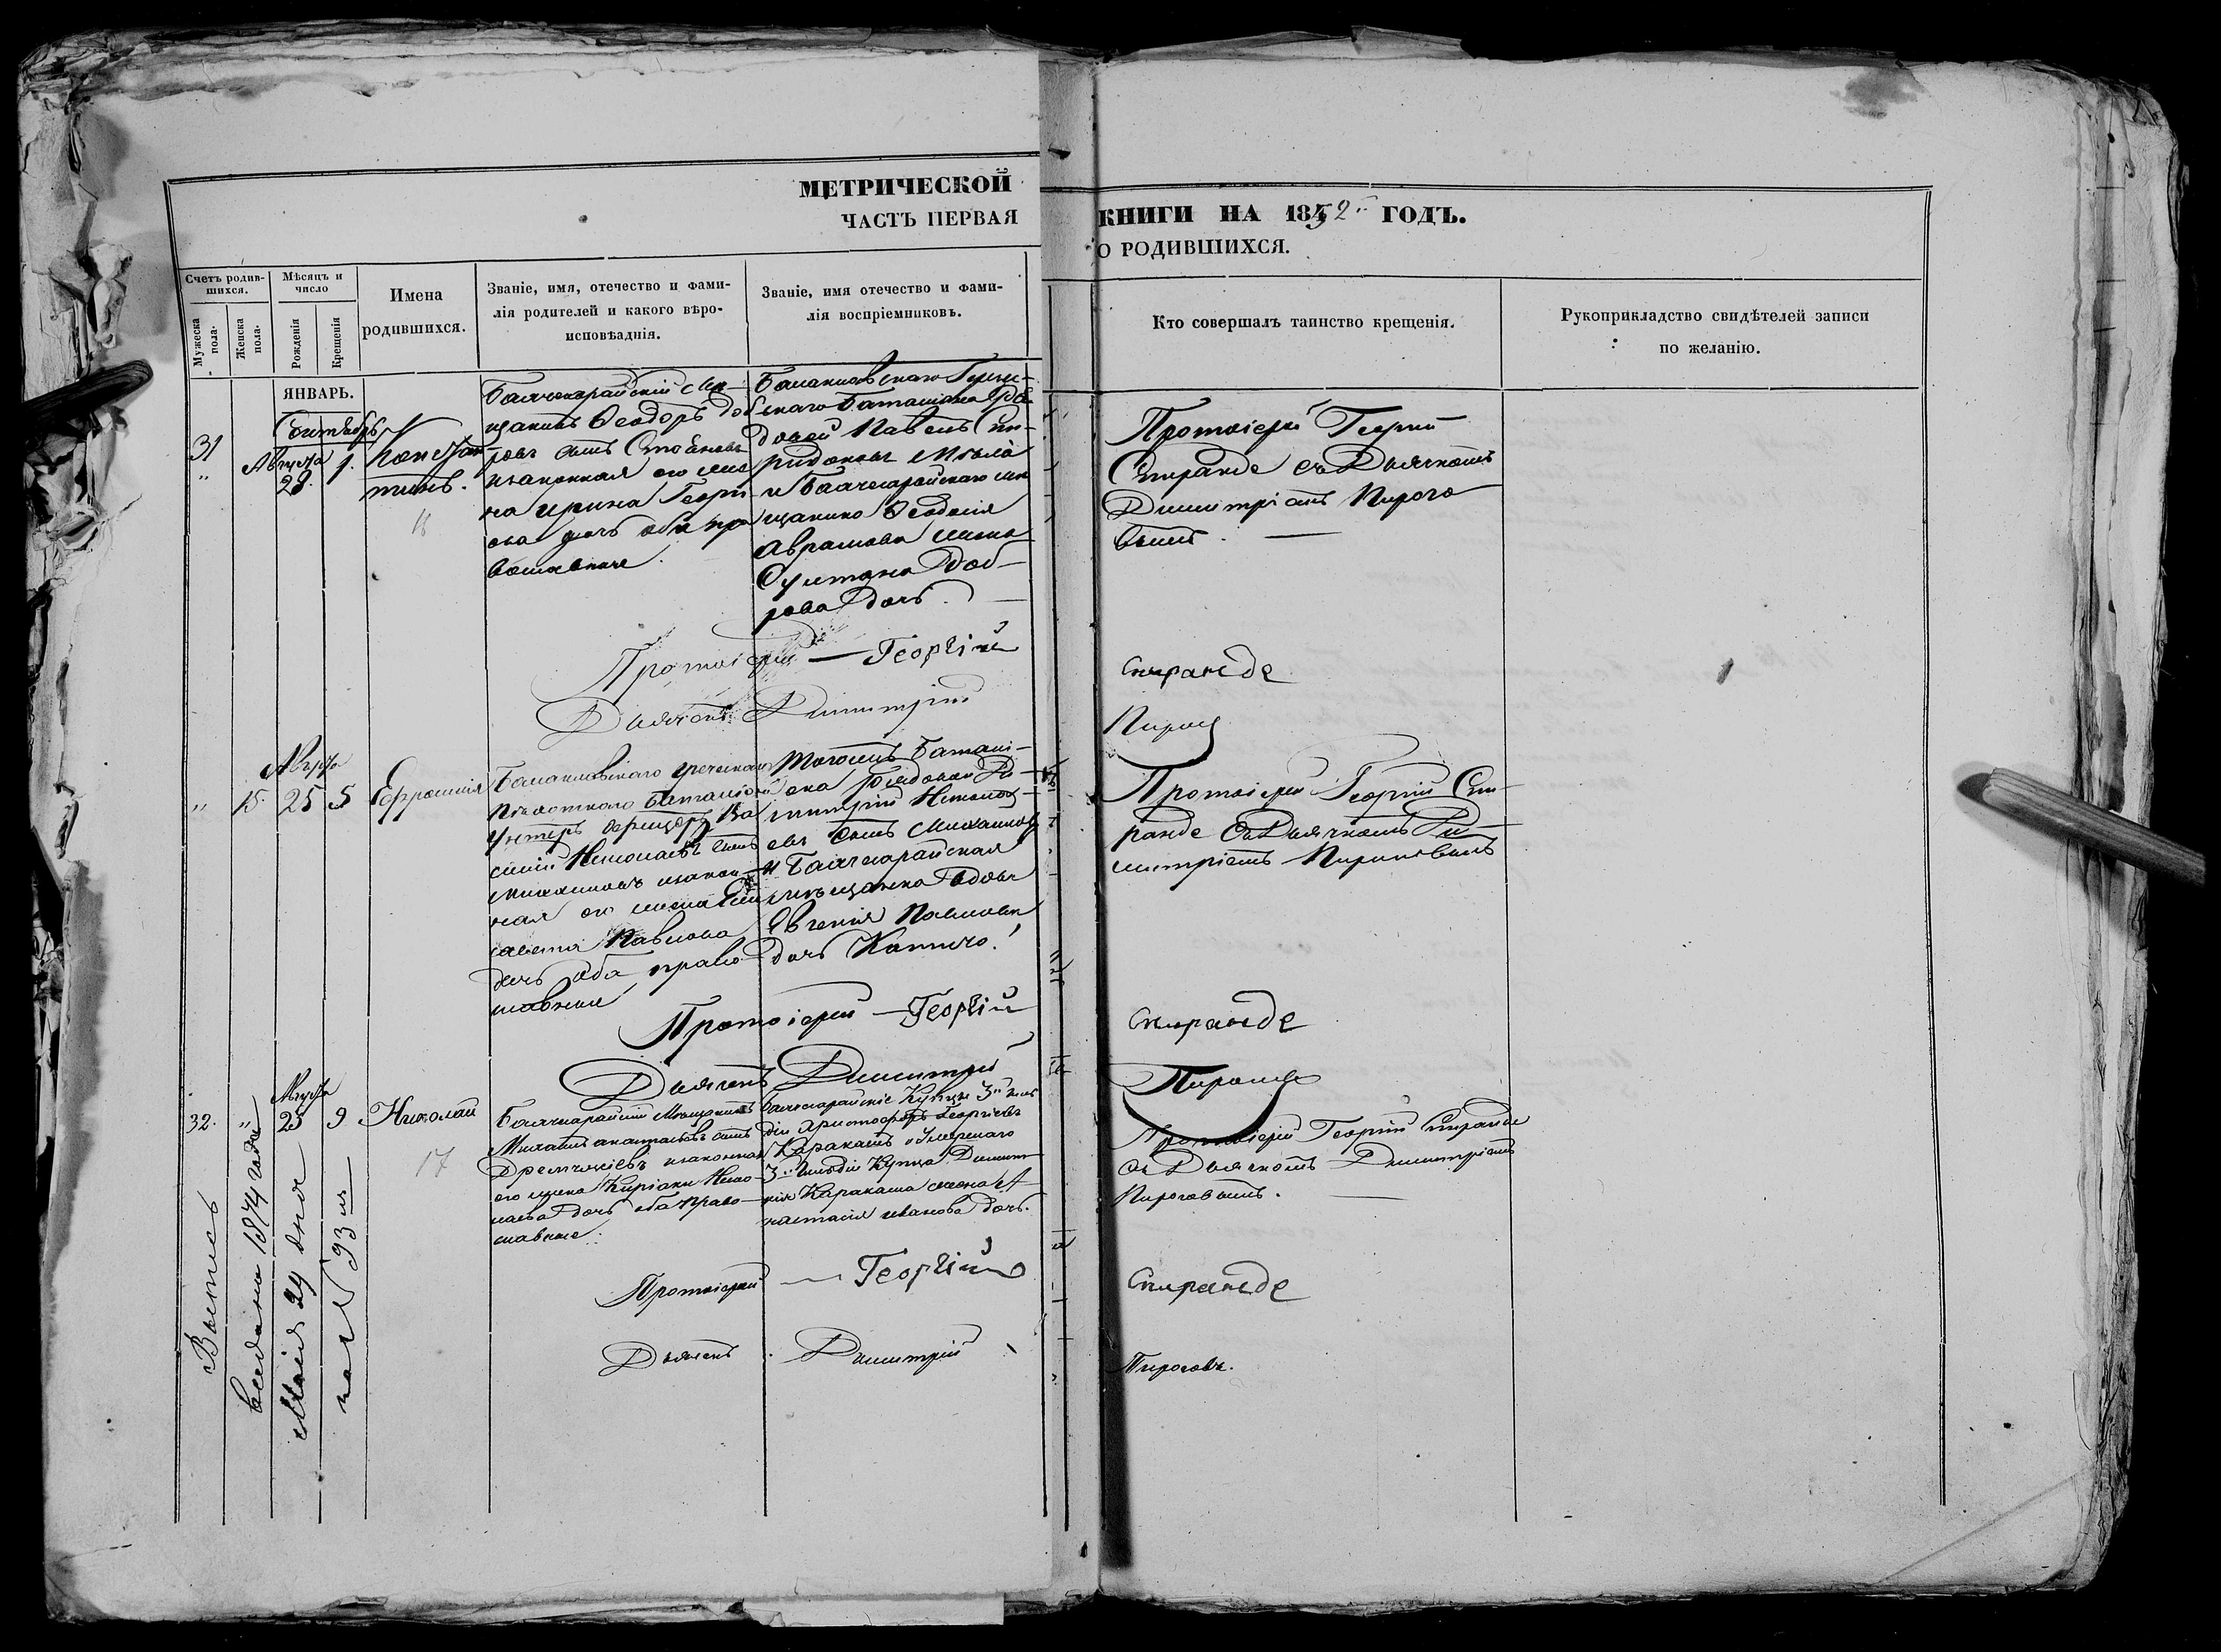 МЕТРИЧЕСКОЙ
ЧАСТЬ ПЕРВАЯ
КНИГИ НА 1852 ГОДЪ.
О РОДИВШИХСЯ.
Счетъ родив-
шихся.
Мужеска пола.
Женска пола.
Мѣсяцъ и
число
Рожденія
Крещенія
Имена
родившихся.
Званіе, имя, отечество и фами-
лія родителей и какого вѣро-
исповѣданія.
Званіе, имя отечество и фами-
лія воспріемниковъ.
Кто совершалъ таинство крещенія.
Рукоприкладство свидѣтелей записи
по желанію.
ЯНВАРЬ.
Сентябрь
31
"
Августа
28.
1.
Констан
тинъ.
Бахчисарайскій Мѣ-
щанинъ Ѳеодоръ
сынъ
изаконная его жена
Ирина Георгі
ева дочь оба пра
вославные.
Балаклавскаго Грече-
скаго Баталіона Ря-
довой Павелъ Спи-
ридоновъ
и Бахчисарайскаго мѣ
щанина Ѳеодосія
Аврамова жена
Султана
дочь.
Протоіерей Георгій
Спиранде съ Дьячкомъ
Димитріемъ Пирого
вымъ.
Протоіерей — Георгій
Спиранде
Дьячекъ Димитрій
Пирогов
"
15.
Августа
25
5
Евфросинія
Балаклавскаго греческаго
пѣхотнаго баталіона
Унтеръ офицеръ Ва
силій Николаевъ сынъ
изакон-
ная его жена Ели
савета Павлова
дочь оба право
славные
Тогожъ Баталі-
она рядовой Ди-
митрій Николa-
евъ сынъ Михаиловъ
и Бахчисарайская
мѣщанка вдова
Евгенія Павлова
дочь
Протоіерей Георгій Спи-
ранде съ Дьячкомъ Ди-
митріемъ Пироговымъ
Протоіерей — Георгій
Спиранде
Дьячекъ Димитрій
Пироговъ
32.
"
Августа
25
9
Николай
17
Бахчисарайскій Мѣщанинъ
Михаилъ Анастасіевъ сынъ
изаконная
его жена Киріаки Нико-
лаева дочь оба право-
славные.
Бахчисарайскіе Купцы 3й гиль
діи Христофоръ Георгіевъ
Каракашъ и
3й гильдіи Купца Димит
рія Каракаша жена А
настасія Иванова дочь.
Протоіерей Георгій Спиранде
съ Дьячкомъ Димитріемъ
Пироговымъ.
Протоіерей — Георгій
Спиранде
Дьячекъ Димитрій
Пироговъ.
Выпись
выдана 1874 года
Маія 24 дня
за № 93 м